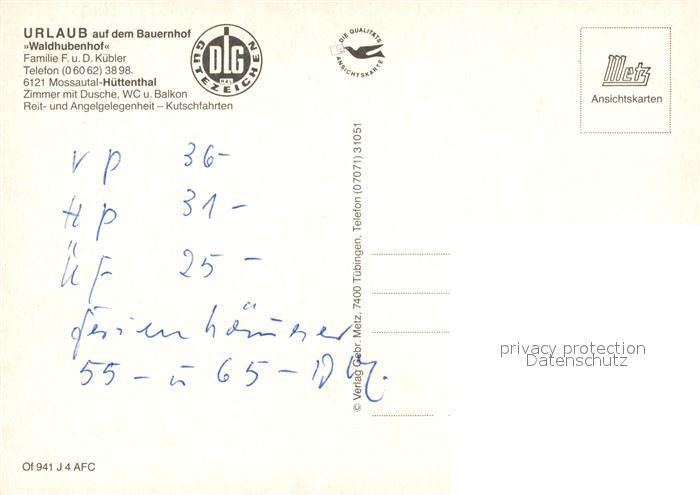 URLAUB auf dem Bauernhof
»Waldhubenhof«
Familie F. u. D. Kübler
Telefon (0 60 62) 38 98.
6121 Mossautal-Hüttenthal
Zimmer mit Dusche, WC u. Balkon
Reit- und Angelgelegenheit – Kutschfahrten
DLG
RAL
GÜTEZEICHEN
DIE QUALITÄTS
ANSICHTSKARTE
Metz
Ansichtskarten
VP 36-
HP 31-
ÜF 25-
Ferienhäuser
55- u 65- DM.
© Verlag Gebr. Metz, 7400 Tübingen, Telefon (07071) 31051
privacy protection
Datenschutz
Of 941 J 4 AFC